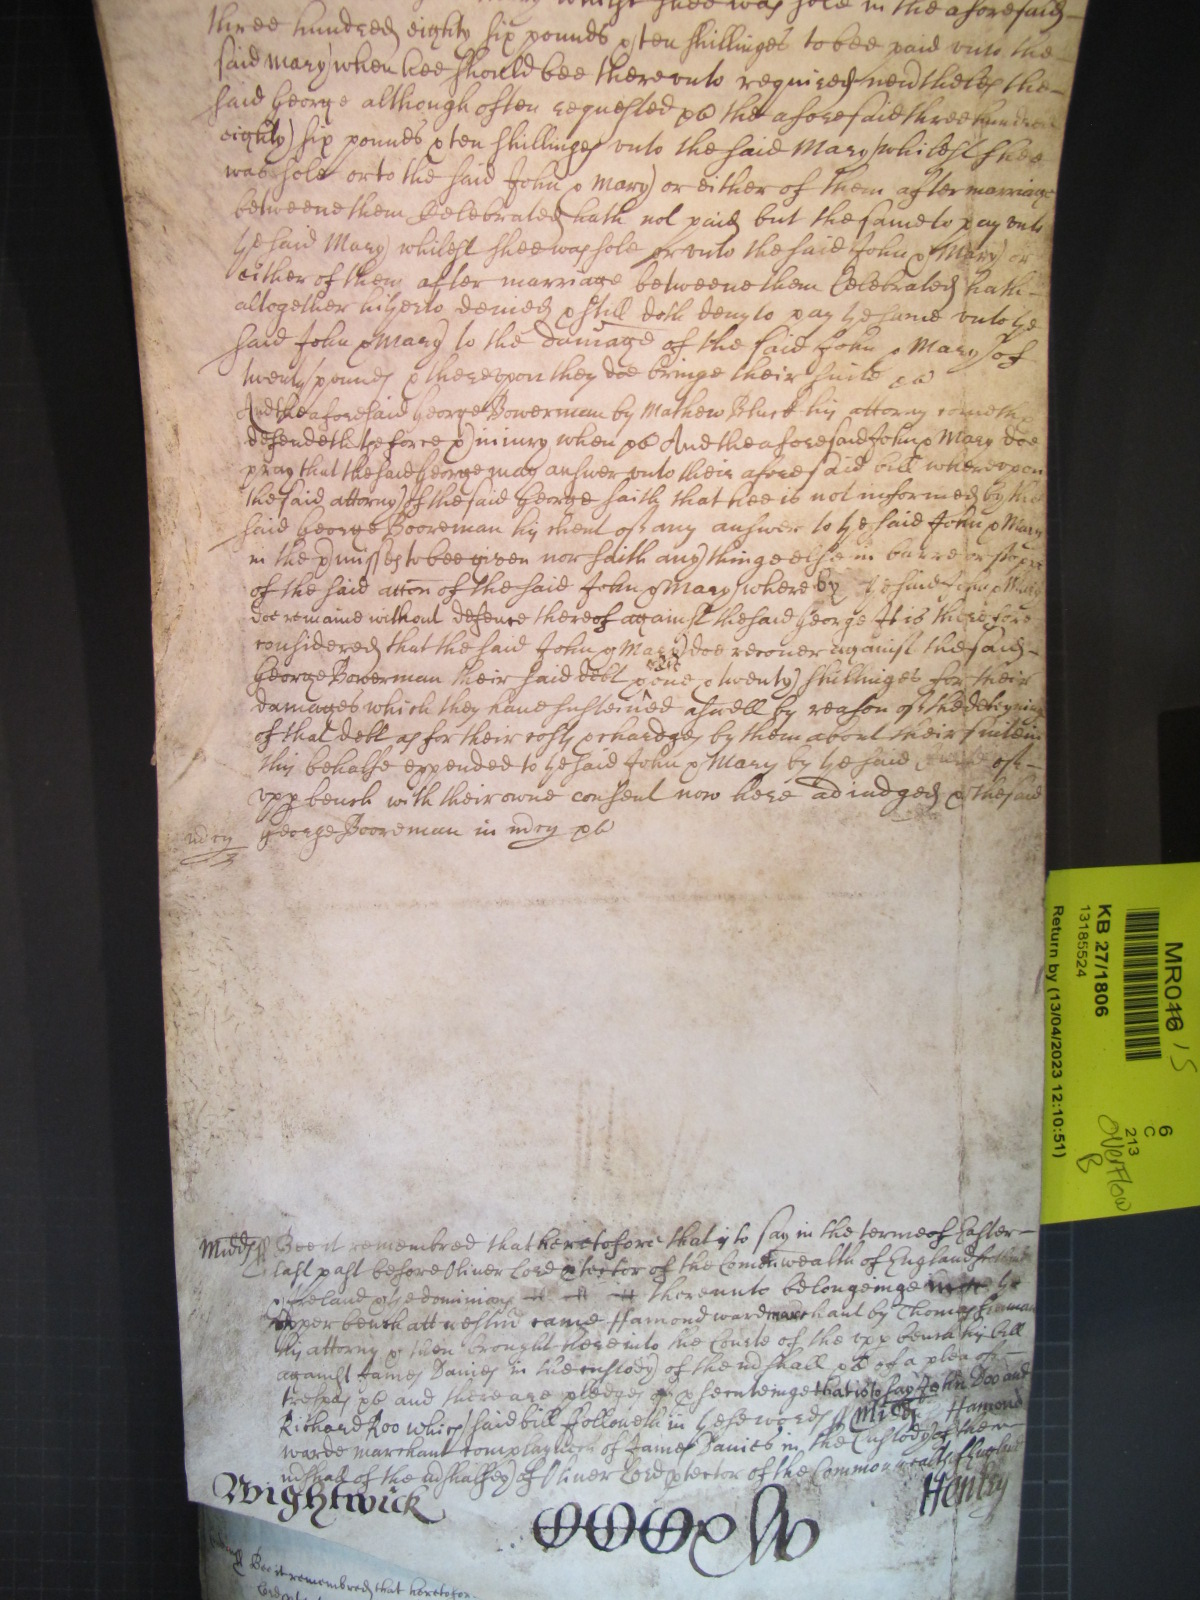 whilst shee was sole in the aforesaid
three hundred eighty six pounds & ten shillinges to bee paid unto the
said Mary when hee should bee thereunto required neverthelesse the
said George although often requested &c the aforesaid three hundred
eighty six pounds & ten shillinges unto the said Mary whilest shee
was sole or to the said John & Mary or either of them after marriage
betweene them Celebrated hath not paid but the same to pay unto
ye said Mary whilest shee was sole or unto the said John & Mary or
either of them after marriage betweene them Celebrated hath
altogether hitherto denied & still doth deny to pay ye same unto ye
said John & Mary to the damage of the said John & Mary of
twenty pounds & thereupon they doe bringe their suite &c
And the aforesaid George Bowerman by Mathew Bluck his attorny cometh &
defendeth ye force & iniury when &c And the aforesaid John & Mary doe
pray that the said George may answer unto their aforesaid bill whereupon
the said attorny of the said George saith that hee is not informed by the
said George Booreman his client of any answer to ye said John & Mary
in the p'misses to bee given nor saith any thinge else in barre or
of the said accon of the said John & Mary whereby ye said John & Mary
doe remaine without defence thereof against the said George It is therefore
considered that the said John & Mary doe recover against the said
George Bowerman their said debt & one & twenty shillinges for their
damages which they have susteined aswell by reason of the deteyning
of that debt as for their costs & chardges by them about their suite in
this behalfe expended to ye said John & Mary by ye said of
upp bench with their owne consent now here adiudged & the said
George Booreman in mcy &c
mcy
Midds ss Bee it remembred that heretofore that is to say in the terme of Easter
last past before Oliver Lord p'tector of the Comonwealth of England
& Ireland & ye dominions thereunto belongeinge
upper bench att westm' came Hamond ward marchant by Thomas
his attorny & then brought here into the Courte of the upp bench his bill
against James Davies in the custody of the m'shall &c of a plea of
trespas &c and there are pledges of p'secuteinge that is to say John Doo and
Richard Roo which said bill followeth in these words ss Midds Hamond
warde marchant complayneth of James Davies in the Custody of the
m'shall of the m'shalsey of Oliver Lord p'tector of the Commonwealth of England
Wightwick
Henley
Bee it remembred that heretofor
MR046 15
KB 27/1806
13185524
Return by (13/04/2023 12:10:51)
6
C
213
Overflow
B